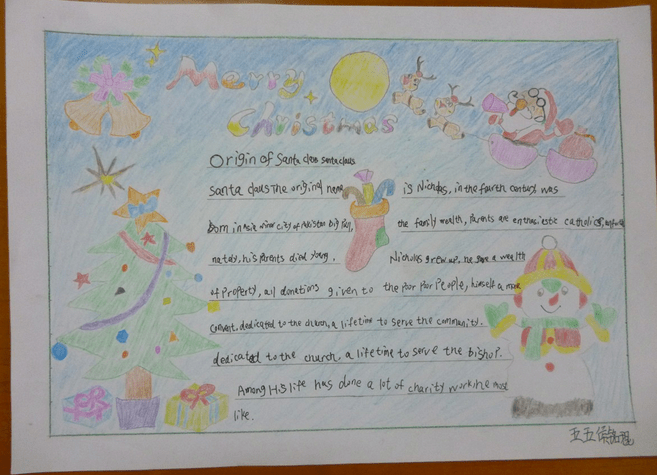 Merry
Christmas
Origin of Santa claus santa claus
santa claus The original name is Nicholas, in the fourth century was
born in Asia minor city of big, the family wealth, parents are enthusiastic catholics,
nately, his parents died young. Nicholas grew up, he gave a wealth
of property, all donations given to the poor poor People, himself a
convent, dedicated to the church, a lifetime to serve the community.
dedicated to the church, a lifetime to serve the bishop.
Among His life has done a lot of charity work, he most
like.
五五